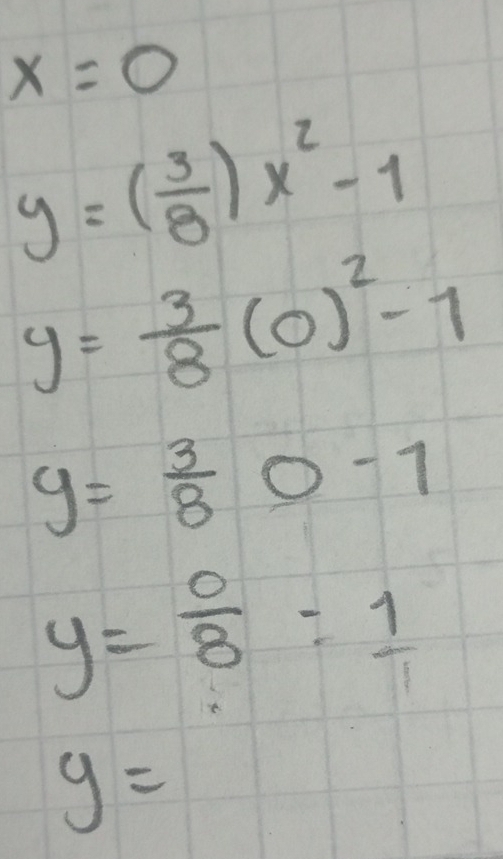 x = 0
y = (3/8) x² - 1
y = 3/8 (0)² - 1
y = 3/8 0 - 1
y = 0/8 - 1/1
y =